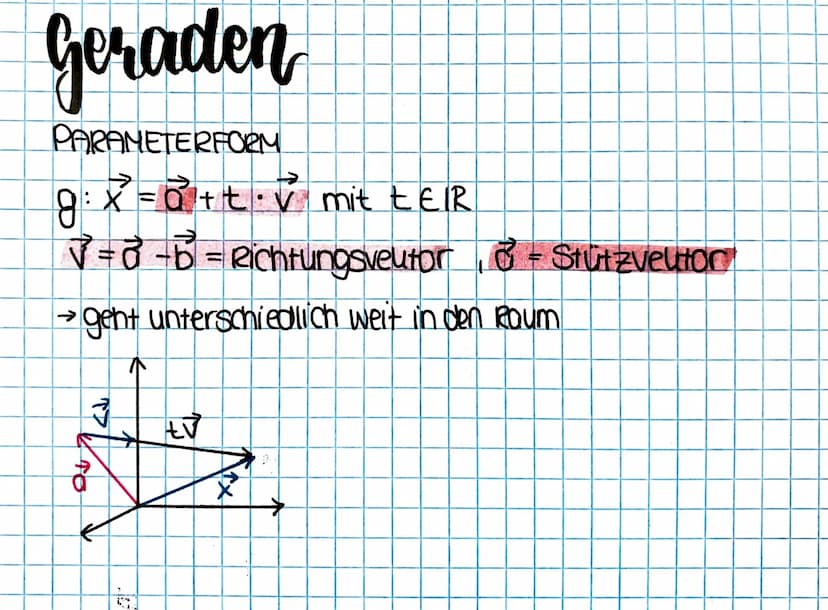 Geraden
PARAMETERFORM
g: x⃗ = a⃗ + t · v⃗ mit t ∈ ℝ
v⃗ = a⃗ - b⃗ = Richtungsvektor , a⃗ = Stützvektor
→ geht unterschiedlich weit in den Raum
v⃗
tv⃗
a⃗
x⃗